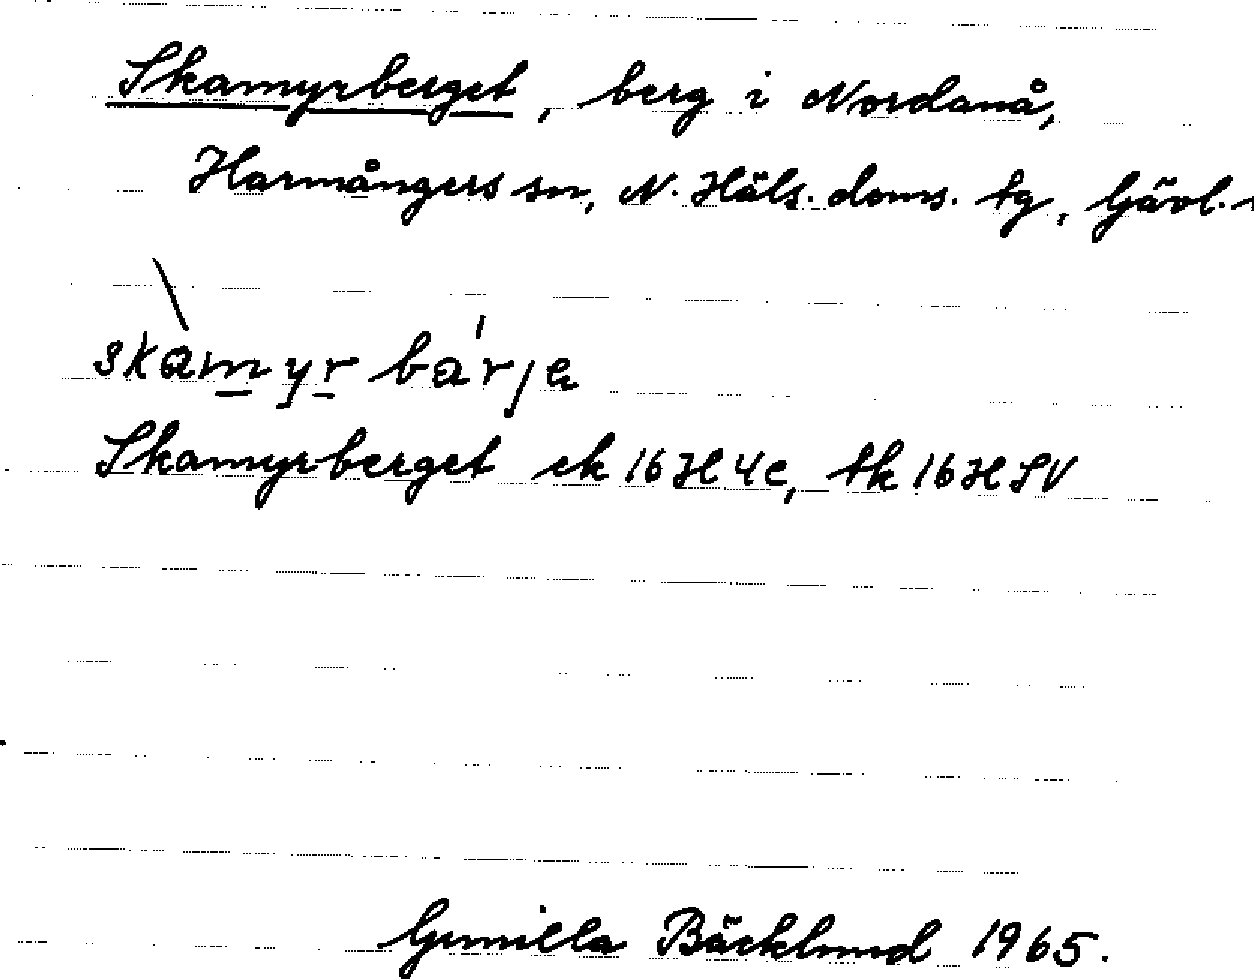 Skamyrberget, berg i Nordanå,
Harmångers sn, N. Häls. doms. tg, Gävl.
skàmyr bárje
Skamyrberget ek 16H4c, tk 16H SV
Gunilla Bäcklund 1965.